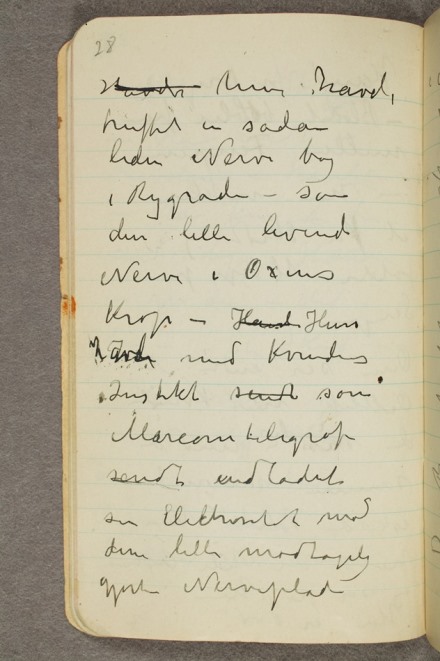 28
Haand hun, Haand,
truffet en sådan
liden Nerve bag
i Rygraden – som
den lille levende
Nerve i Oxens
Krop – Haand Hun
med Kvindens
Instikt sendt som
Marconitelegraf
sendt udladet
sin Elektricitet mod
denne lille modtagelig
gjorte Nerveplade